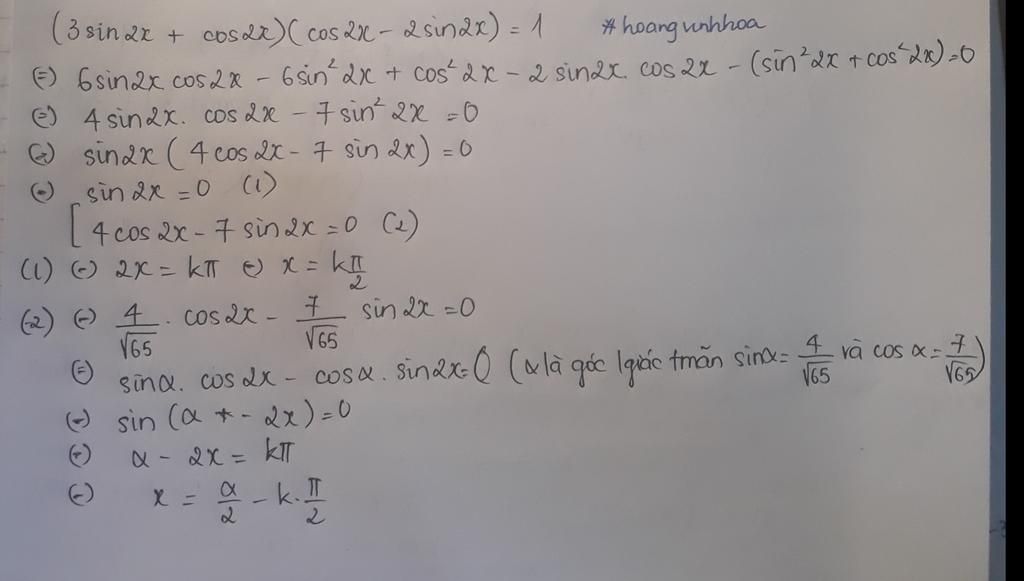 (3sin2x + cos2x)(cos2x - 2sin2x) = 1 #hoangvnhhoa
(=) 6sin2x cos2x - 6sin²2x + cos²2x - 2 sin2x. cos2x - (sin²2x + cos²2x)=0
(=) 4sin2x. cos2x - 7sin²2x =0
(=) sin2x (4cos2x - 7 sin2x) =0
(=) [ sin2x =0 (1)
4cos2x - 7sin2x =0 (2)
(1) (=) 2x = kπ (=) x = kπ/2
(2) (=) 4/√65 . cos2x - 7/√65 sin2x =0
(=) sinα. cos2x - cosα. sin2x=0 (α là góc lgiác tmãn sinα= 4/√65 và cos α= 7/√65)
(=) sin (α + - 2x) =0
(=) α - 2x = kπ
(=) x = α/2 - k. π/2